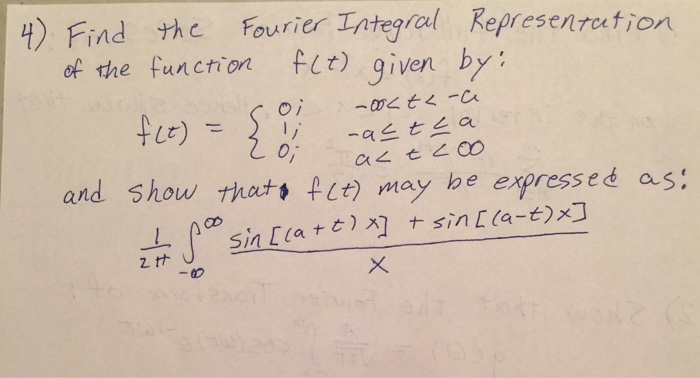 4) Find the Fourier Integral Representation
of the function f(t) given by:
f(t) = { 0; -∞<t<-a
1; -a≤t≤a
0; a<t<∞
and show that f(t) may be expressed as:
1/2π ∫_{-∞}^{∞} sin[(a+t)x] + sin[(a-t)x] / x